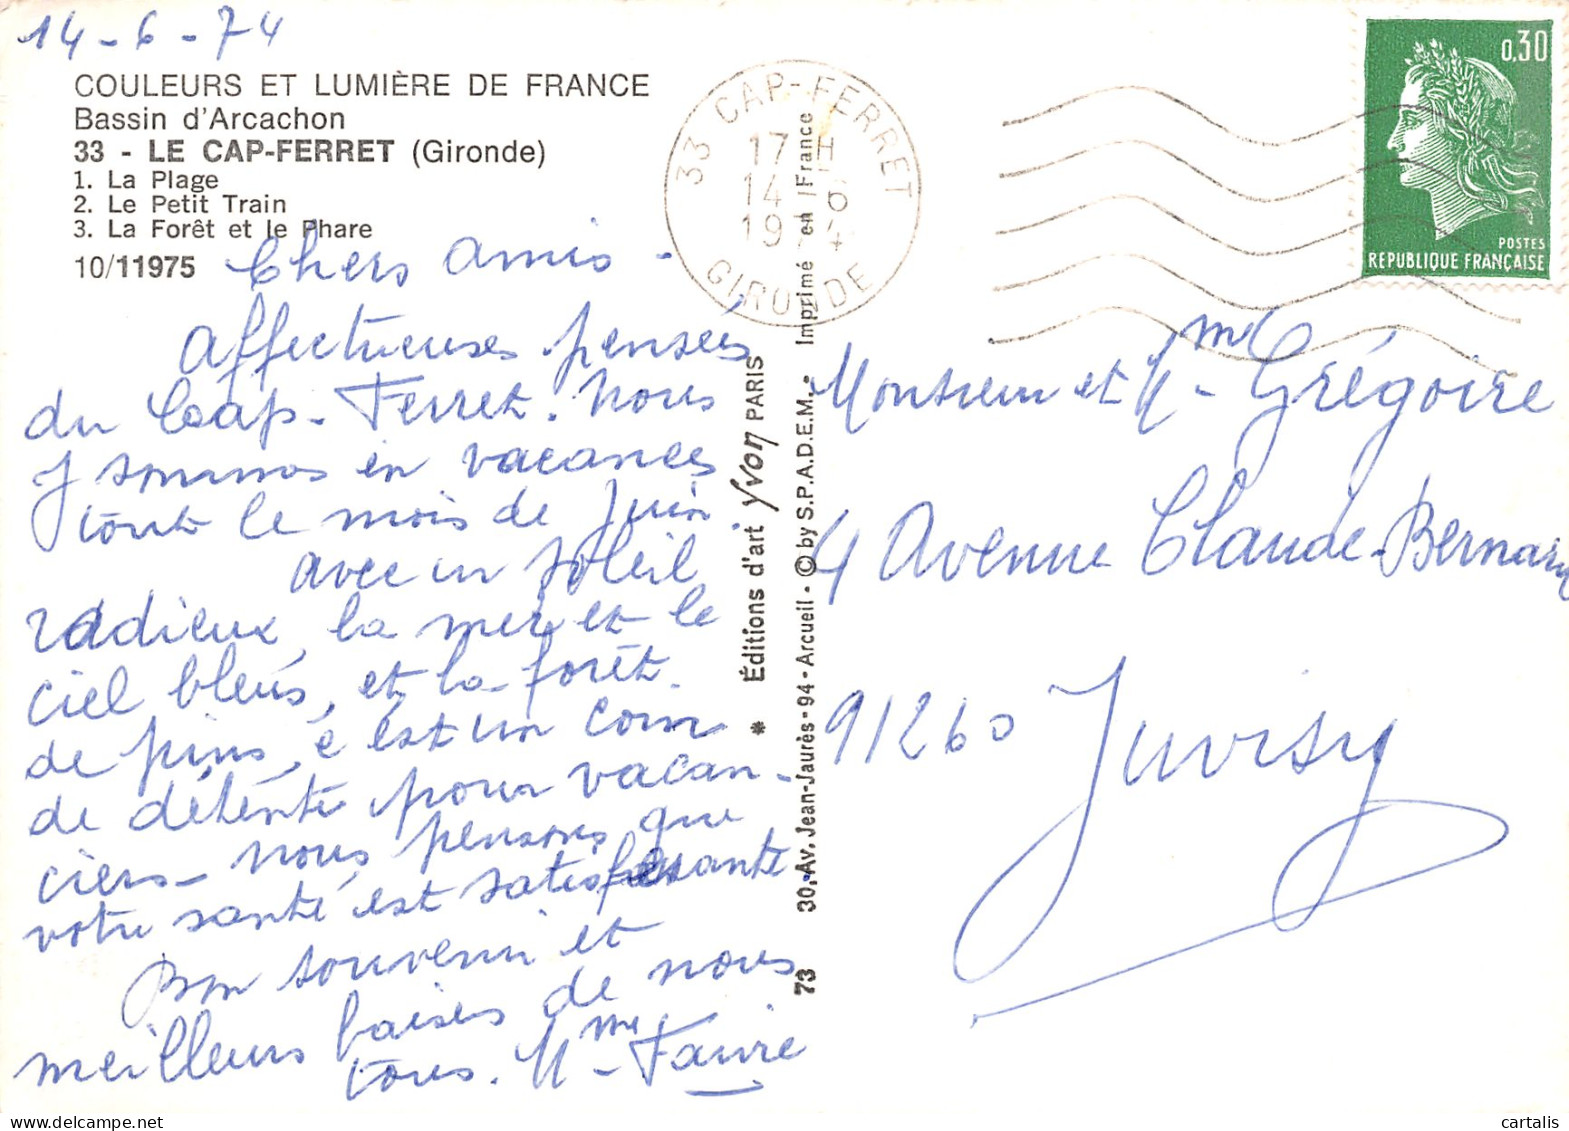 14-6-74
COULEURS ET LUMIÈRE DE FRANCE
Bassin d'Arcachon
33 - LE CAP-FERRET (Gironde)
1. La Plage
2. Le Petit Train
3. La Forêt et le Phare
10/11975
Chers amis -
Affectueuses pensées
du Cap-Ferret. Nous
y sommes en vacances
tout le mois de Juin.
avec un soleil
radieux, la mer et le
ciel bleus, et la forêt
de pins, c'est un coin
de détente pour vacan-
ciers - nous pensons que
votre santé est satisfaisante
Bon souvenir et
meilleurs baisers de nous
tous. Mme Faivre
33 CAP-FERRET
17 H
14-6
1974
GIRONDE
* Éditions d'art Yvon PARIS
30, Av. Jean-Jaurès - 94 - Arcueil • © by S.P.A.D.E.M. • Imprimé en France
73
0,30
POSTES
REPUBLIQUE FRANÇAISE
Monsieur et Mme Grégoire
4 Avenue Claude-Bernard
91260 Juvisy
cartalis